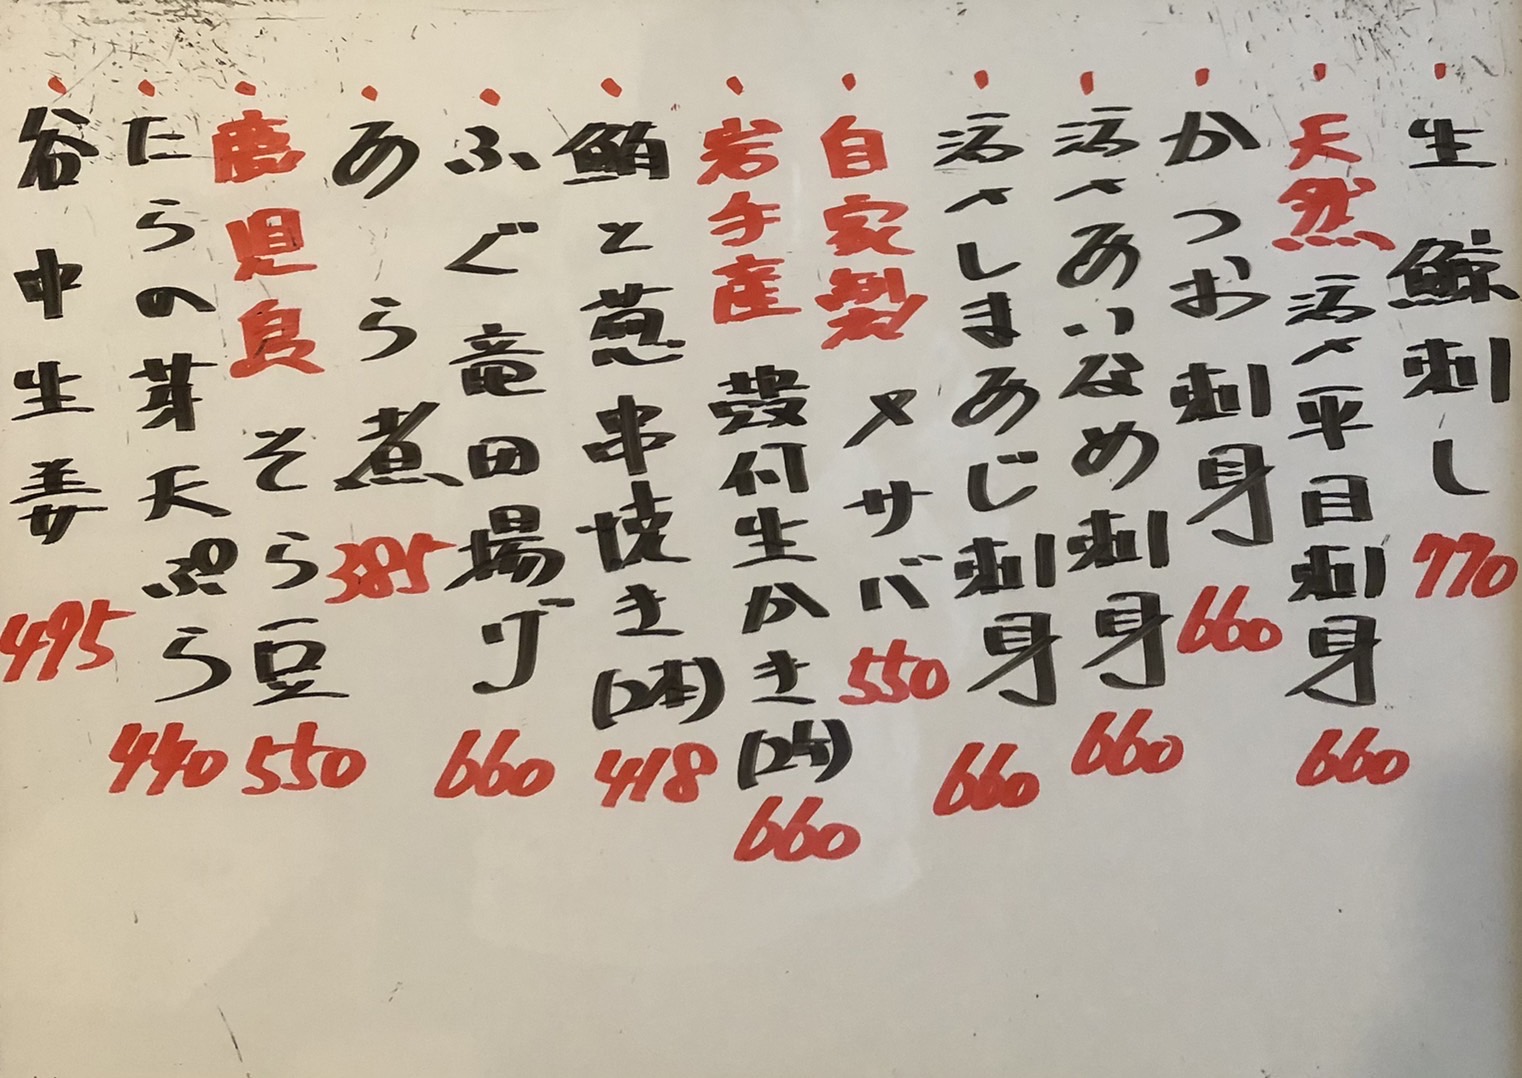 生鯨刺し 770
天然活〆平目刺身 660
かつお刺身 660
活〆あいなめ刺身 660
活〆しまあじ刺身 660
自家製〆サバ 550
岩手産殻付生かき(2ケ) 660
鮪と葱串焼き(2本) 418
ふぐ竜田揚げ 660
あら煮 385
鹿児島そら豆 550
たらの芽天ぷら 440
谷中生姜 495